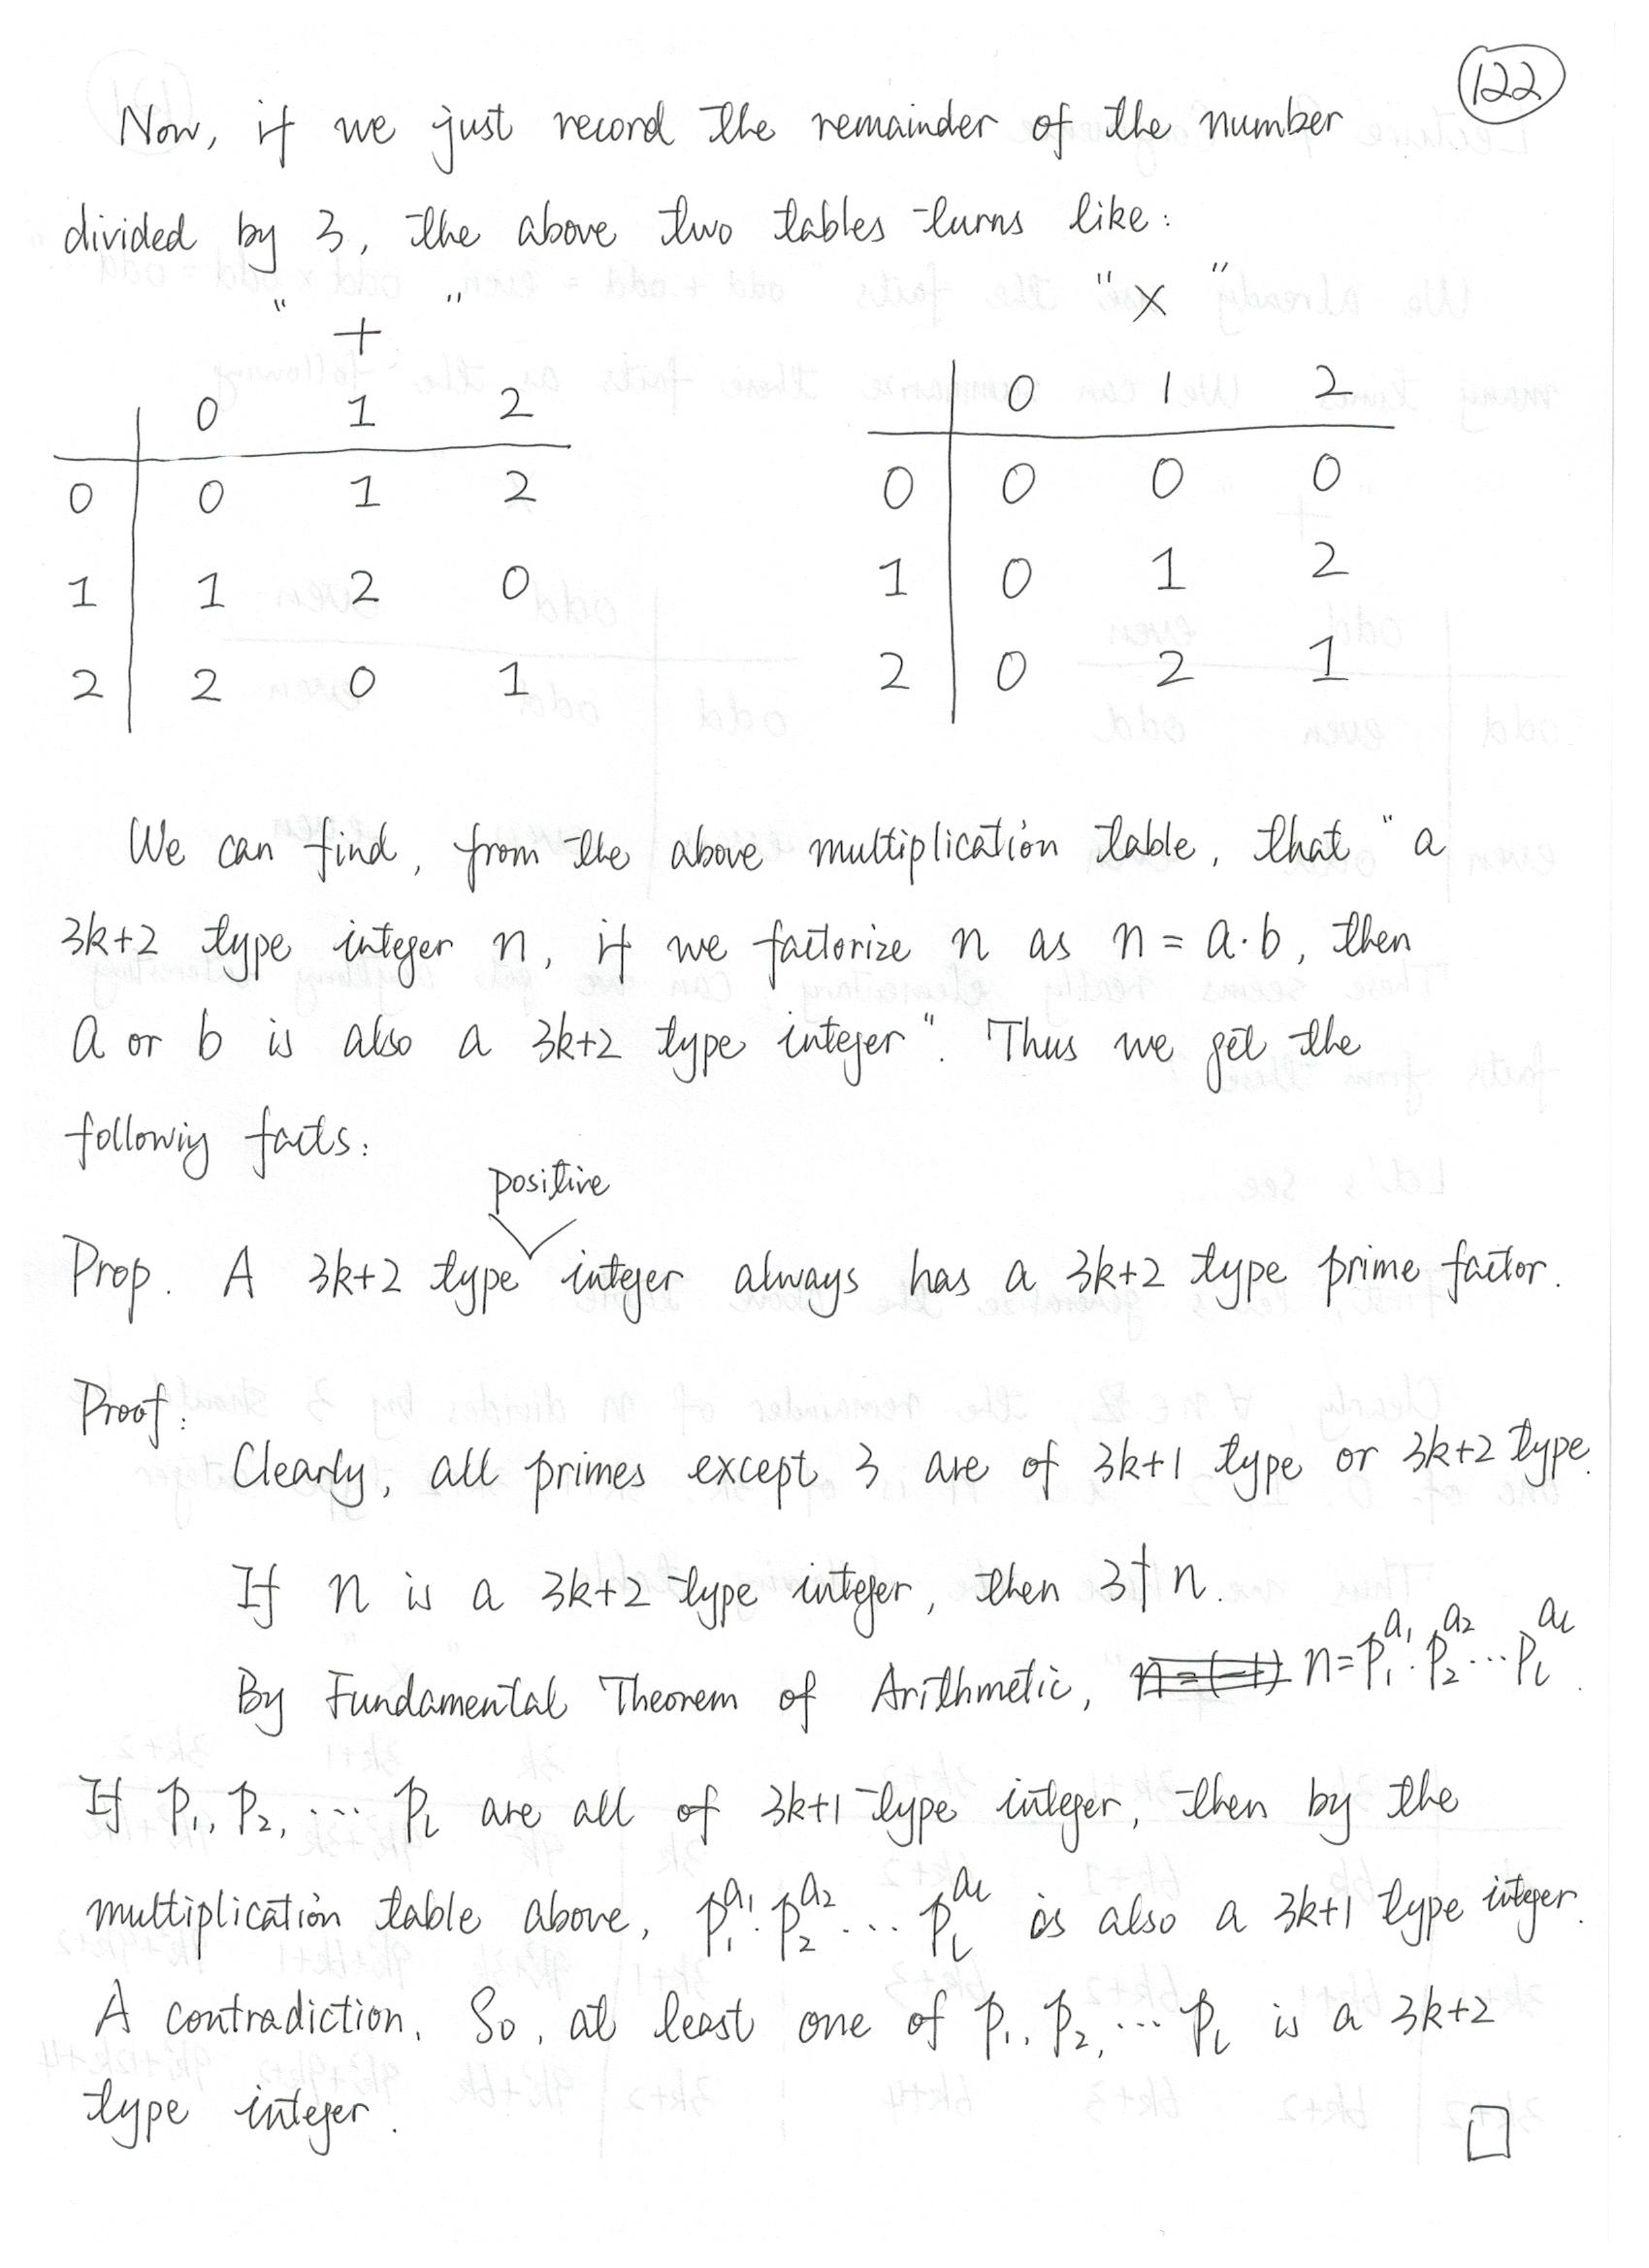 122
Now, if we just record the remainder of the number
divided by 3, the above two tables turns like:
" + "
0 1 2
0 0 1 2
1 1 2 0
2 2 0 1
" × "
0 1 2
0 0 0 0
1 0 1 2
2 0 2 1
We can find, from the above multiplication table, that "a
3k+2 type integer n, if we factorize n as n = a·b, then
a or b is also a 3k+2 type integer". Thus we get the
followiy facts:
positive
Prop. A 3k+2 type integer always has a 3k+2 type prime factor.
Proof:
Clearly, all primes except 3 are of 3k+1 type or 3k+2 type.
If n is a 3k+2 type integer, then 3∤n.
By Fundamental Theorem of Arithmetic, n=(-1) n=p₁^a₁·p₂^a₂···p_l^a_l.
If p₁, p₂, ··· p_l are all of 3k+1 type integer, then by the
multiplication table above, p₁^a₁·p₂^a₂···p_l^a_l is also a 3k+1 type integer.
A contradiction. So, at least one of p₁, p₂, ··· p_l is a 3k+2
type integer. □